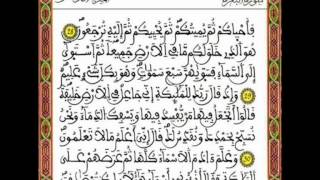 سورة البقرة
فَأَحْيَاكُمْ ثُمَّ يُمِيتُكُمْ ثُمَّ يُحْيِيكُمْ ثُمَّ إِلَيْهِ تُرْجَعُونَ
هُوَ الَّذِي خَلَقَ لَكُم مَّا فِي الْأَرْضِ جَمِيعًا ثُمَّ اسْتَوَىٰ
إِلَى السَّمَاءِ فَسَوَّيٰهُنَّ سَبْعَ سَمَٰوَٰتٍ وَهُوَ بِكُلِّ شَيْءٍ عَلِيمٌ
وَإِذْ قَالَ رَبُّكَ لِلْمَلَٰئِكَةِ إِنِّي جَاعِلٌ فِي الْأَرْضِ خَلِيفَةً
قَالُوا أَتَجْعَلُ فِيهَا مَن يُفْسِدُ فِيهَا وَيَسْفِكُ الدِّمَاءَ وَنَحْنُ
نُسَبِّحُ بِحَمْدِكَ وَنُقَدِّسُ لَكَ قَالَ إِنِّيَ أَعْلَمُ مَا لَا تَعْلَمُونَ
وَعَلَّمَ ءَادَمَ الْأَسْمَاءَ كُلَّهَا ثُمَّ عَرَضَهُمْ عَلَى